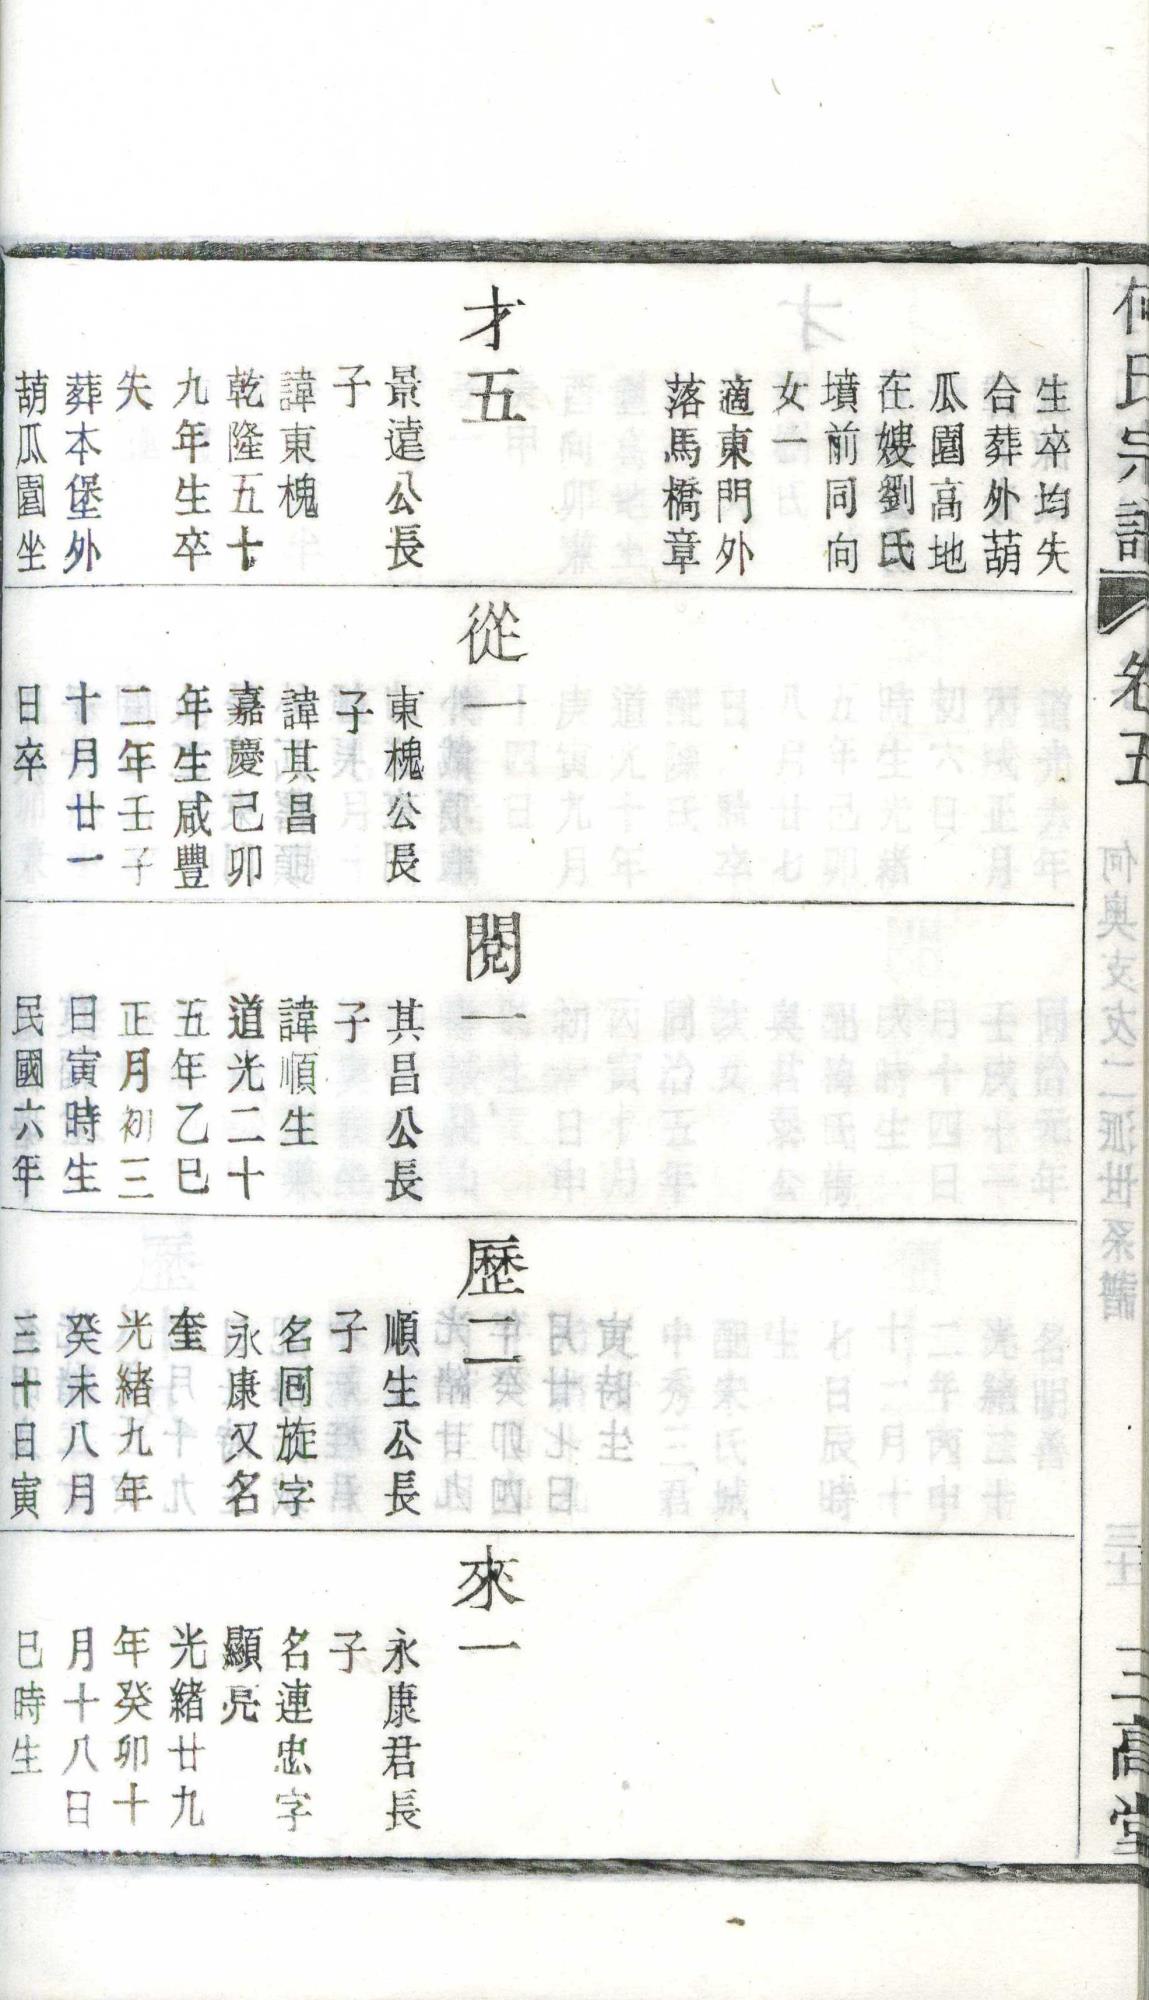 何氏宗譜
卷五
三高堂
生卒均失
合葬外葫
瓜園高地
在嫂劉氏
墳前同向
女一
適東門外
落馬橋章
才五
景遠公長
子
諱東槐
乾隆五十
九年生卒
失
葬本堡外
葫瓜園坐
從一
東槐公長
子
諱其昌
嘉慶己卯
年生咸豐
二年壬子
十月廿一
日卒
閱一
其昌公長
子
諱順生
道光二十
五年乙巳
正月初三
日寅時生
民國六年
歷二
順生公長
子
名回旋字
永康又名
奎
光緒九年
癸未八月
三十日寅
來一
永康君長
子
名連忠字
顯亮
光緒廿九
年癸卯十
月十八日
巳時生